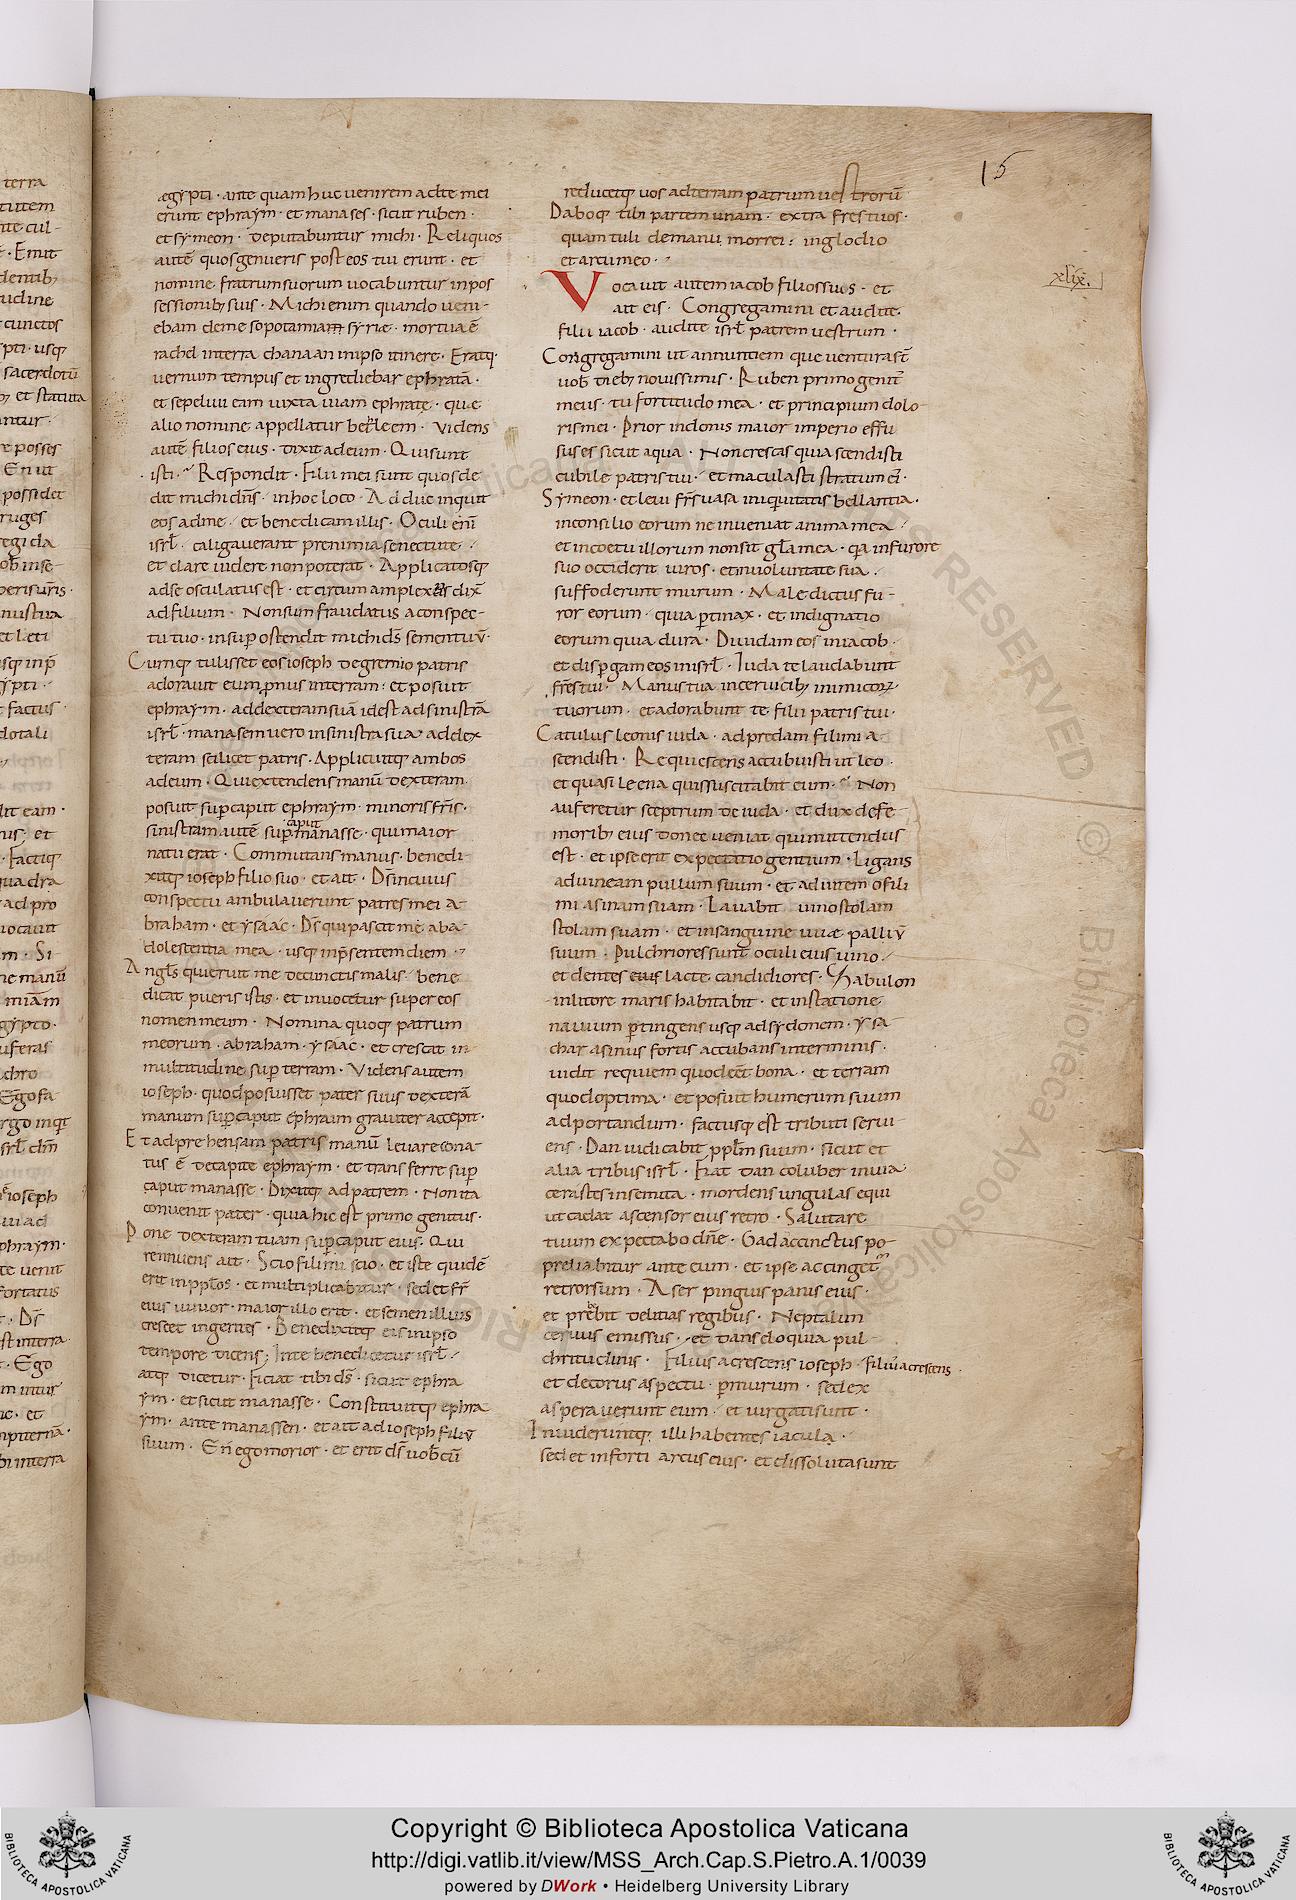 15
ægypti · ante quam huc venirem ad te mei
erunt ephraym · et manases · sicut ruben ·
et symeon · deputabuntur michi · Reliquos
autē quos genueris post eos tui erunt · et
nomine fratrum suorum vocabuntur in pos
sessionib; suis · Michi enim quando veni-
ebam de mesopotamiam syriæ · mortua ē
rachel in terra chanaan in ipso itinere · Eratq·
vernum tempus et ingrediebar ephratā ·
et sepelivi eam iuxta viam ephratę · quę
alio nomine appellatur bethleem · Videns
autē filios eius · dixit ad eum · Qui sunt
isti · Respondit · Filii mei sunt quos de
dit michi dn̄s · in hoc loco · Adduc inquit
eos ad me · et benedicam illis · Oculi enī
isrl̄ · caligaverant pre nimia senectute ·
et clare videre non poterat · Applicatosq
ad se osculatus est · et circum amplexus dix̄
ad filium · Non sum fraudatus a conspec-
tu tuo · insup ostendit michi ds̄ semen tuū ·
Cumq tulisset eos ioseph de gremio patris
adoravit eum pnus in terram · et posuit
ephraym · ad dexteram suā id est ad sinistrā
isrl̄ · manasem vero in sinistra sua ad dex
teram scilicet patris · Applicuitq ambos
ad eum · Qui extendens manū dexteram
posuit sup caput ephraym · minoris fr̄is ·
sinistram autē sup caput manasse · qui maior
natu erat · Commutans manus · benedi-
xitq ioseph filio suo · et ait · Ds̄ in cuius
conspectu ambulaverunt patres mei a-
braham · et ysaac · Ds̄ qui pascit me ab a
dolescentia mea · usq in p̄sentem diem ·
Angl̄s qui eruit me de cunctis malis · bene
dicat pueris istis · et invocetur super eos
nomen meum · Nomina quoq patrum
meorum · abraham · ysaac · et crescat in
multitudine sup terram · Videns autem
ioseph · quod posuisset pater suus dexterā
manum sup caput ephraim graviter accepit ·
Et adprehensam patris manū levare cona-
tus ē de capite ephraym · et transferre sup
caput manasse · Dixitq ad patrem · Non ita
convenit pater · quia hic est primogenitus ·
Pone dexteram tuam sup caput eius · Qui
rennuens ait · Scio fili mi scio · et iste quidē
erit in pplōs · et multiplicabitur · sed et fr̄
eius iunior · maior illo erit · et semen illius
crescet in gentes · Benedixitq eis in ipso
tempore dicens; In te benedicetur isrl̄ ·
atq dicetur · Faciat tibi ds̄ · sicut ephra
ym · et sicut manasse · Constituitq ephra
ym · ante manassen · et ait ad ioseph filiū
suum · En ego morior · et erit ds̄ vobcū
reducetq vos ad terram patrum vestrorū
Daboq tibi partem unam · extra fr̄es tuos ·
quam tuli de manu morrei · in gladio
et arcu meo ·
xlix.
Vocavit autem iacob filios suos · et
ait eis · Congregamini et audite
filii iacob · audite isrl̄ patrem vestrum ·
Congregamini ut annuntiem que ventura st̄
vob dieb; novissimis · Ruben primogenit̄
meus · tu fortitudo mea · et principium dolo-
ris mei · Prior in donis maior imperio effu
sus es sicut aqua · Non crescas quia scendisti
cubile patris tui · et maculasti stratum ei ·
Symeon · et levi fr̄s vasa iniquitatis bellantia ·
in consilio eorum ne inveniat anima mea
et in coetu illorum non sit gl̄a mea · qa in furore
suo occiderit viros · et in voluntate sua ·
suffoderunt murum · Maledictus fu-
ror eorum · quia ptinax · et indignatio
eorum quia dura · Dividam eos in iacob ·
et dispgam eos in isrl̄ · Iuda te laudabunt
fr̄es tui · Manus tua in cervicib; inimicorꝝ
tuorum · et adorabunt te filii patris tui ·
Catulus leonis iuda · ad predam fili mi a-
scendisti · Requiescens accubuisti ut leo ·
et quasi leena quis suscitabit eum · Non
auferetur sceptrum de iuda · et dux de fe-
morib; eius donec veniat qui mittendus
est · et ipse erit expectatio gentium · Ligans
ad vineam pullum suum · et ad vitem o fili
mi asinam suam · Lavabit vino stolam
stolam suam · et in sanguine uvæ palliū
suum · Pulchriores sunt oculi eius vino ·
et dentes eius lacte candidiores · Zabulon
in litore maris habitabit · et in statione
navium ptingens usq ad sydonem · ysa
char asinus fortis accubans inter minus ·
vidit requiem quod eēt bona · et terram
quod optima · et posuit humerum suum
ad portandum · factusq est tributi servi-
ens · Dan iudicabit pplm̄ suum · sicut et
alia tribus isrl̄ · Fiat dan coluber in via
cerastes in semita · mordens ungulas equi
ut cadat ascensor eius retro · Salutare
tuum expectabo dn̄e · Gad accinctus po-
preliabitur ante eum · et ipse accinget
retrorsum · Aser pinguis panis eius ·
et prebit delitias regibus · Neptalim
cervus emissus · et dans eloquia pul-
chritudinis · Filius acrescens ioseph · filiu' acrescens ·
et decorus aspectu · p murum · sed ex
asperaverunt eum · et iurgati sunt ·
Invideruntq illi habentes iacula ·
sed et in forti arcus eius · et dissoluta sunt
Copyright © Biblioteca Apostolica Vaticana
http://digi.vatlib.it/view/MSS_Arch.Cap.S.Pietro.A.1/0039
powered by DWork • Heidelberg University Library
BIBLIOTECA APOSTOLICA VATICANA
BIBLIOTECA APOSTOLICA VATICANA